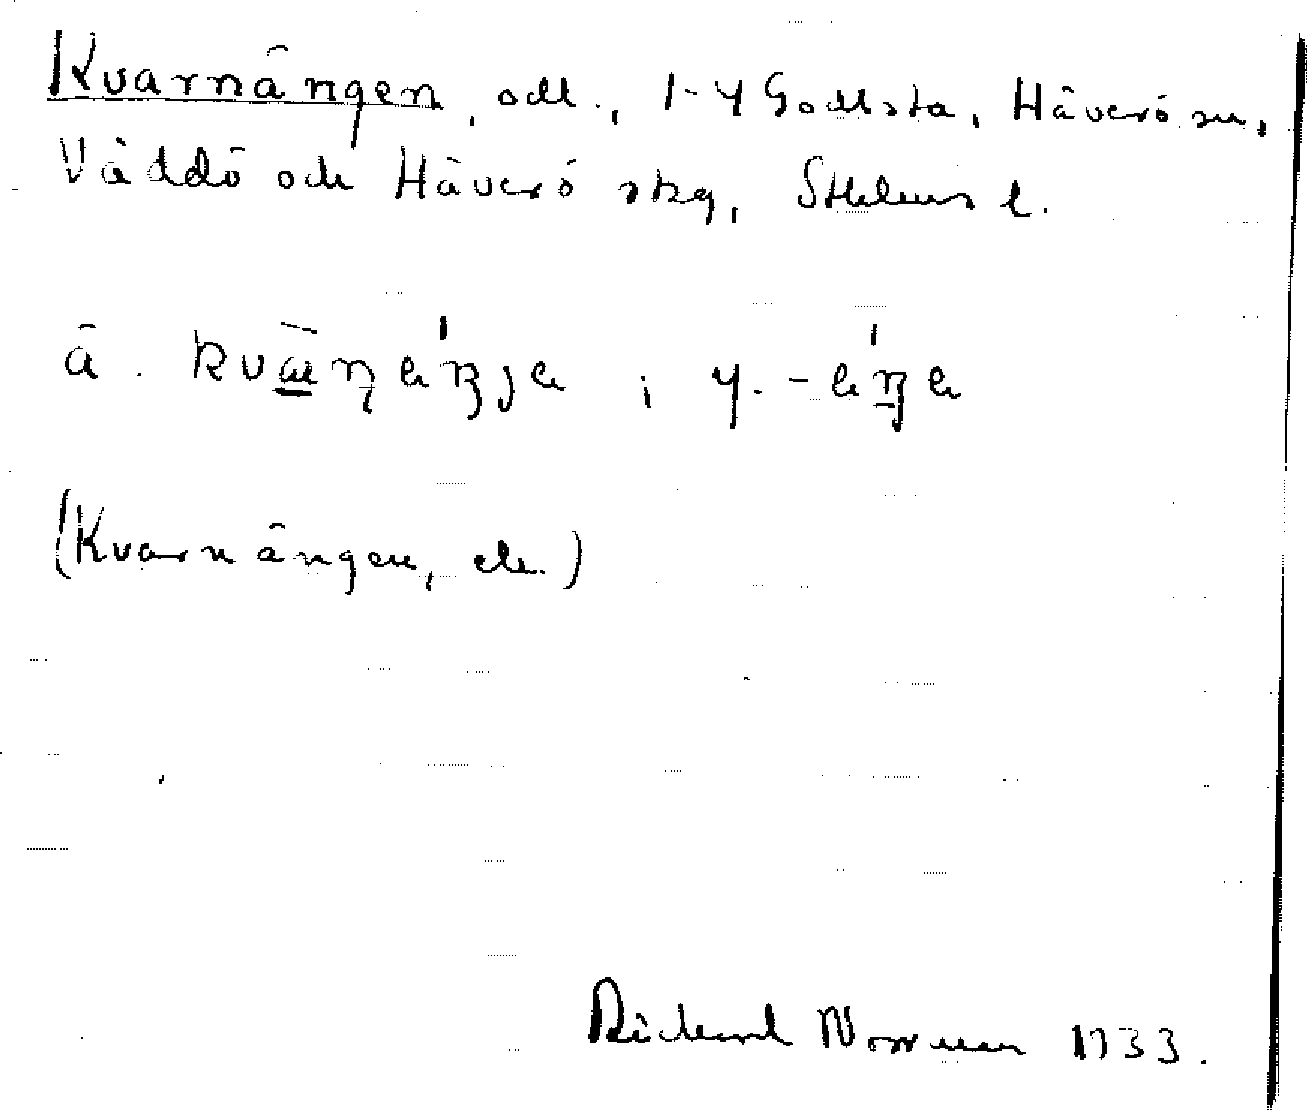 Kvarnängen, odl., 1-4 Godsta, Häverö sn,
Väddö och Häverö skg, Sthlms l.
ä.
; y.
(Kvarnängen,
Rickard Norrman 1933.